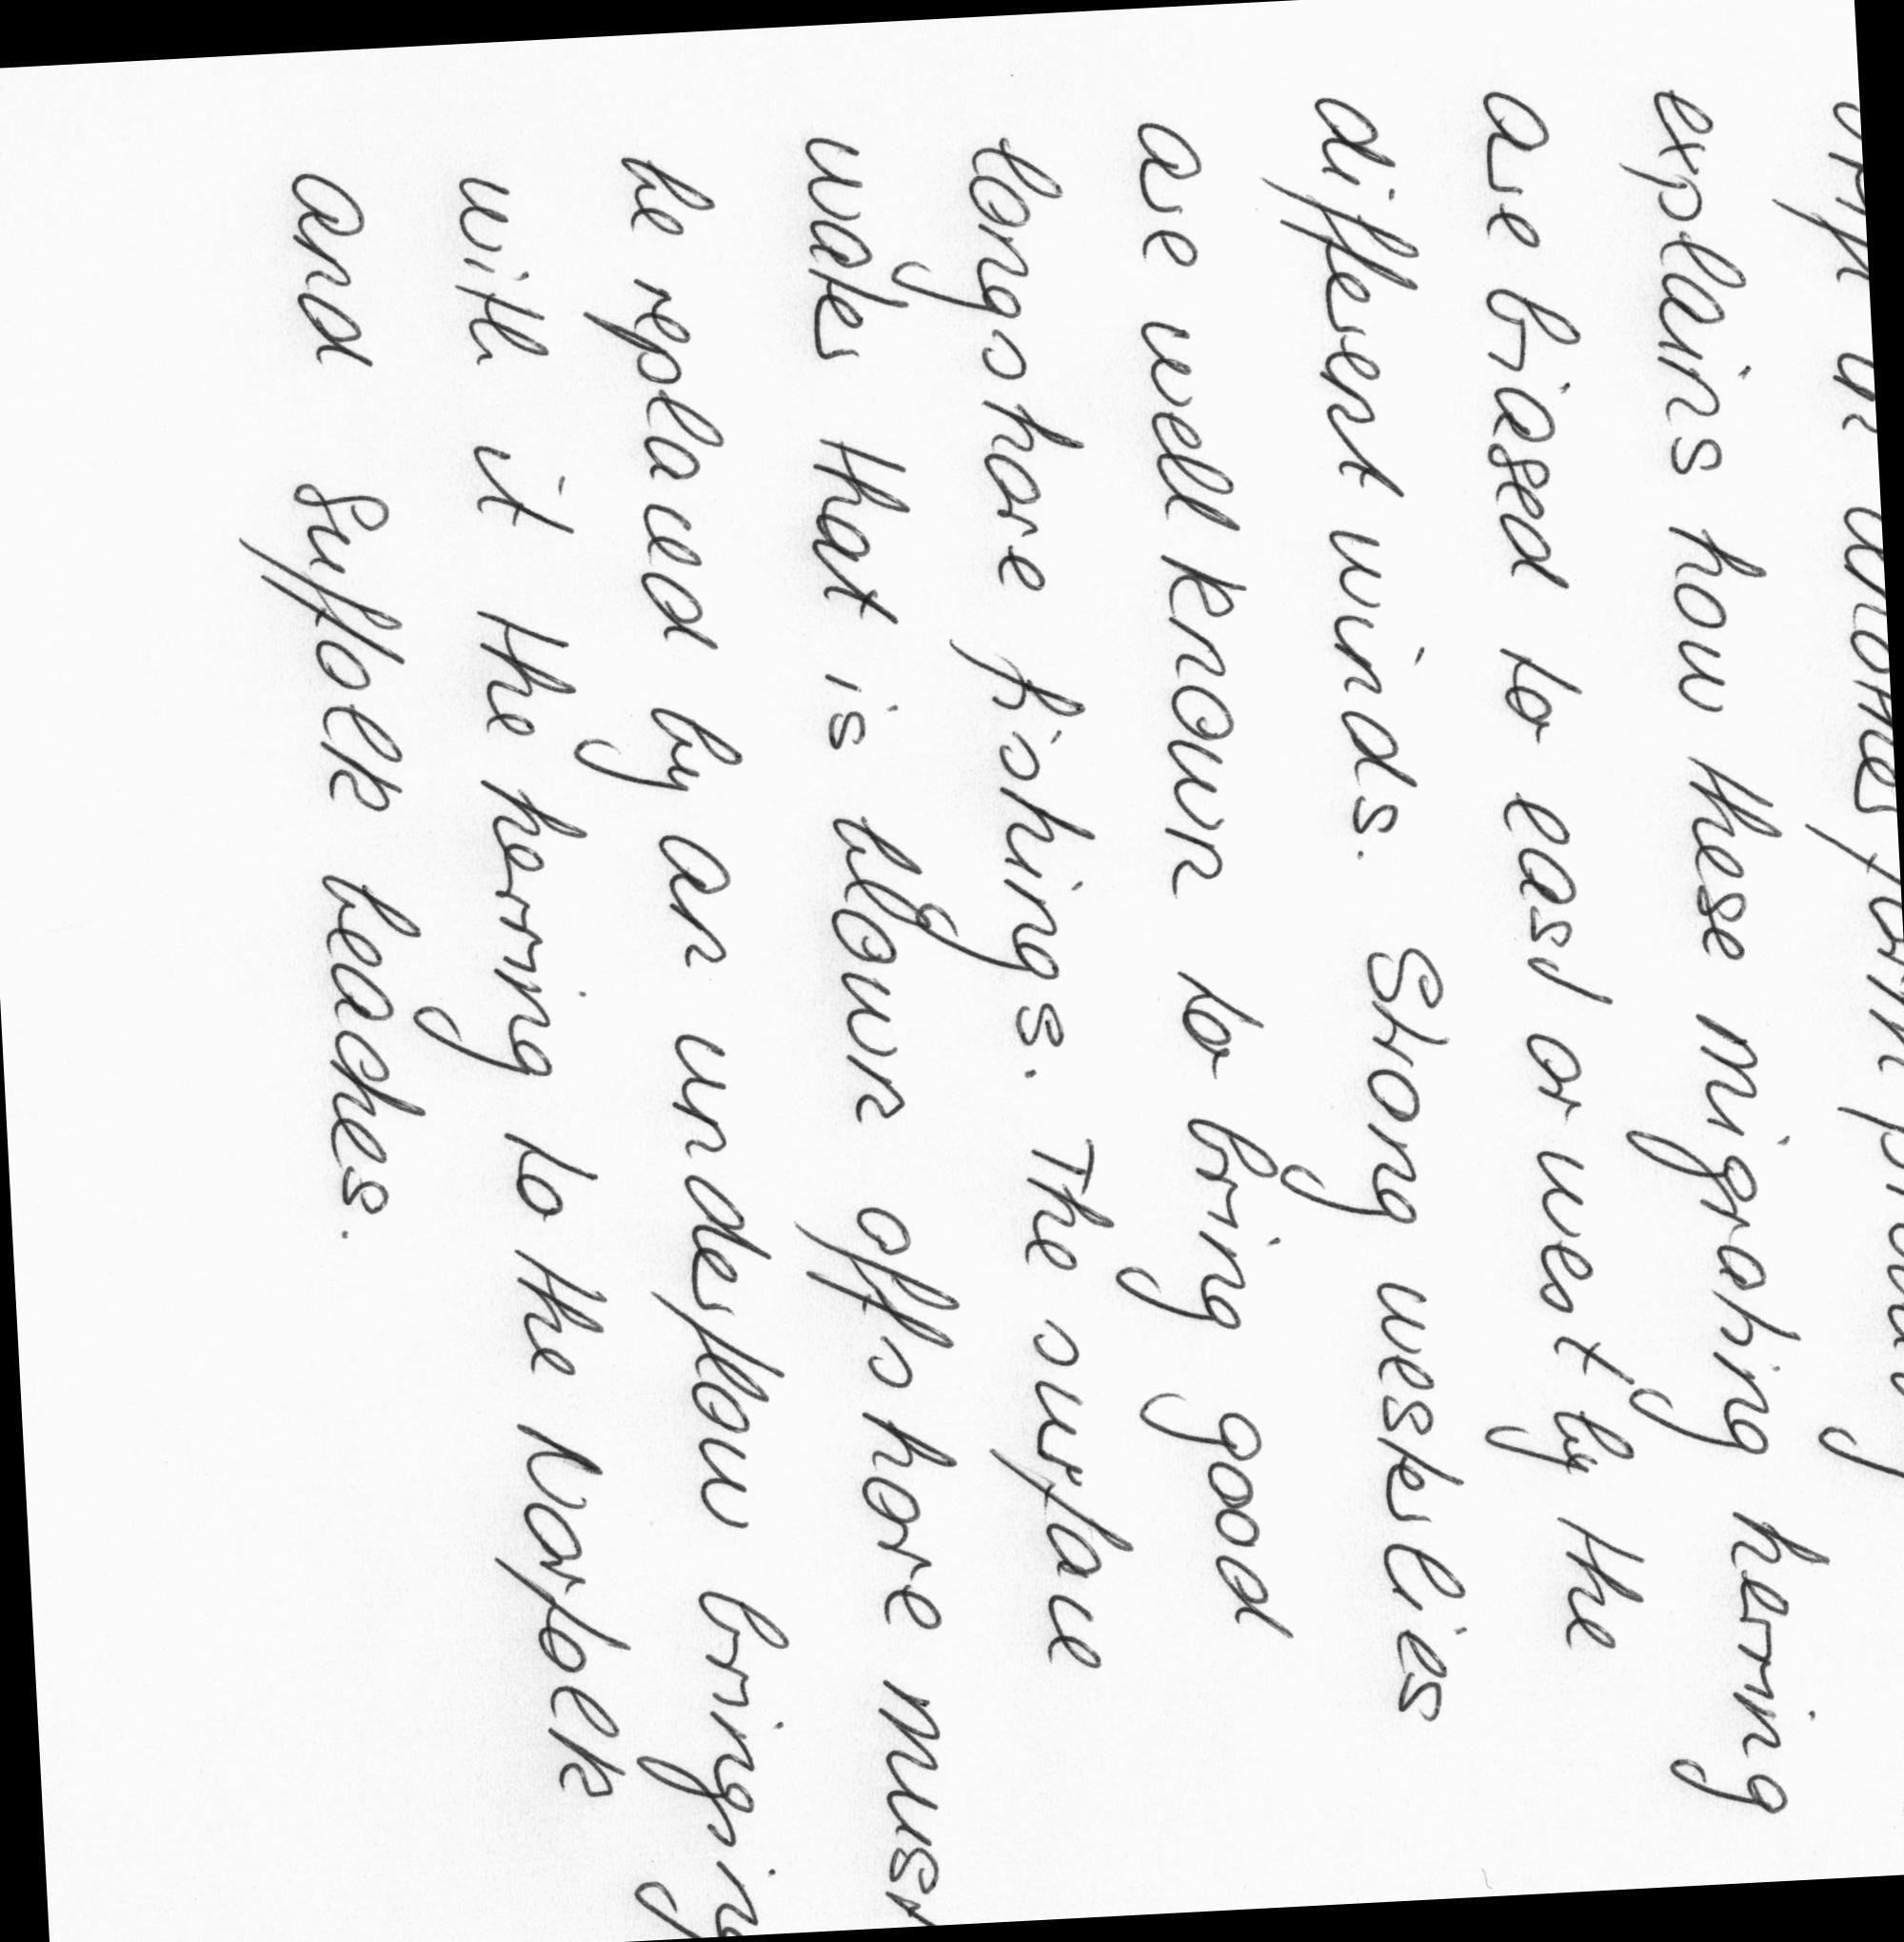 explains how these migrating herring
are biased to east or west by the
different winds. Strong westerlies
are well known to bring good
longshore fishings. The surface
water that is blown offshore must
be replaced by an underflow bringing
with it the herring to the Norfolk
and Suffolk beaches.